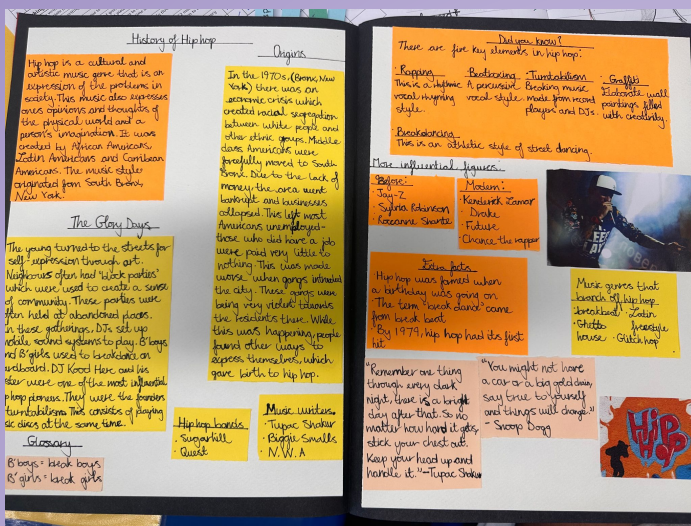 History of Hip hop
Hip hop is a cultural and
artistic music genre that is an
expression of the problems in
society. This music also expresses
ones opinions and thoughts of
the physical world and a
person's imagination. It was
created by African Americans,
Latin Americans and Carribean
Americans. The music styles
originated from South Bronx,
New York.
The Glory Days
The young turned to the streets for
self-expression through art.
Neighbours often had 'block parties'
which were used to create a sense
of community. These parties were
often held at abandoned places.
In these gatherings, DJs set up
mobile sound systems to play. B'boys
and B'girls used to breakdance on
cardboard. DJ Kood Herc and his
sister were one of the most influential
hip hop pioneers. They were the founders
turntablism. This consists of playing
music discs at the same time.
Glossary
B'boys = break boys
B'girls = break girls
Origins
In the 1970s, (Bronx, New
York) there was an
economic crisis which
created racial segregation
between white people and
other ethnic groups. Middle
class Americans were
forcefully moved to South
Bronx. Due to the lack of
money, the area went
bankrupt and businesses
collapsed. This left most
Americans unemployed-
those who did have a job
were paid very little to
nothing. This was made
worse when gangs intruded
the city. These gangs were
being very violent towards
the residents there. While
this was happening, people
found other ways to
express themselves, which
gave birth to hip hop.
Hip hop bands
· Sugarhill
· Quest
Music writers
· Tupac Shakur
· Biggie Smalls
· N.W.A
Did you know?
There are five key elements in hip hop:
· Rapping
This is a rhythmic
vocal rhyming
style.
Beatboxing
A percussive
vocal style.
· Turntablism
Breaking music
made from record
players and DJs.
· Graffiti
Elaborate wall
paintings filled
with creativity.
· Breakdancing
This is an athletic style of street dancing.
More influential figures
Before:
· Jay-Z
· Sylvia Robinson
· Roxeanne Shante
Modern:
· Kenderick Lamar
· Drake
· Future
· Chance the rapper
Extra facts
Hip hop was formed when
a birthday was going on
The term 'break dance' came
from break beat
By 1979, hip hop had its first
hit
Music genres that
branch off hip hop
· breakbeat · Latin
· Ghetto freestyle
house · Glitch hop
"Remember one thing
through every dark
night, there is a bright
day after that. So no
matter how hard it gets,
stick your chest out.
Keep your head up and
handle it." -Tupac Shakur
"You might not have
a car or a big gold chain,
say true to yourself
and things will change."
- Snoop Dogg
HIP
HOP